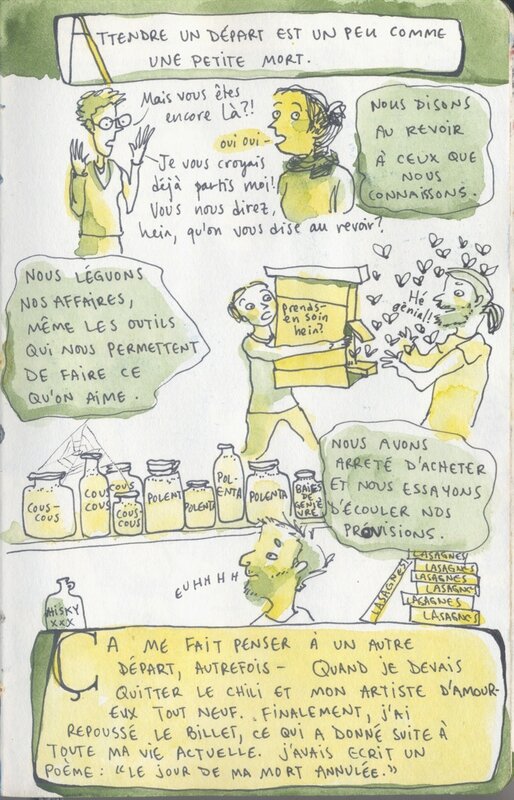 ATTENDRE UN DÉPART EST UN PEU COMME
UNE PETITE MORT.
Mais vous êtes
encore là?!
oui oui-
Je vous croyais
déjà partis moi!
Vous nous direz,
hein, qu'on vous dise au revoir?
NOUS DISONS
AU REVOIR
À CEUX QUE
NOUS
CONNAISSONS.
NOUS LÉGUONS
NOS AFFAIRES,
MÊME LES OUTILS
QUI NOUS PERMETTENT
DE FAIRE CE
QU'ON AIME.
Prends-
en soin
hein?
Hé
génial!!
NOUS AVONS
ARRETÉ D'ACHETER
ET NOUS ESSAYONS
D'ÉCOULER NOS
PROVISIONS.
COUS-
COUS
COUS
COUS
COUS
COUS
COUS
POLENTA
POLENTA
POL-
ENTA
POLENTA
BAIES
DE
GENIÈ
VRE
EUHHHH
HISKY
XXX
LASAGNES
LASAGNES
LASAGNES
LASAGNES
LASAGNES
LASAGNES
LASAGNES
ÇA ME FAIT PENSER À UN AUTRE
DÉPART, AUTREFOIS- QUAND JE DEVAIS
QUITTER LE CHILI ET MON ARTISTE D'AMOUR-
EUX TOUT NEUF. FINALEMENT, J'AI
REPOUSSÉ LE BILLET, CE QUI A DONNÉ SUITE À
TOUTE MA VIE ACTUELLE. J'AVAIS ECRIT UN
POÈME: "LE JOUR DE MA MORT ANNULÉE."